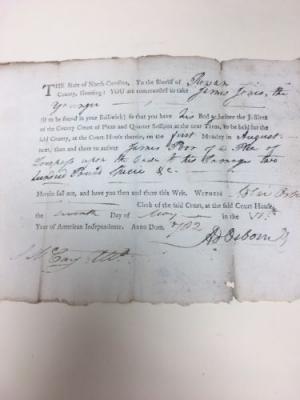 THE State of North-Carolina, To the Sheriff of Rowan
County, Greeting: YOU are commanded to take James
Younger
(if to be found in your Bailiwick) so that you have his Body before the Justices
of the County Court of Pleas and Quarter Sessions at the next Term, to be held for the
said County, at the Court House therein, on the first Monday in August
next, then and there to answer James of a Plea of
Trespass upon the Case to his Damage two
hundred Pounds &c.
Herein fail not, and have you then and there this Writ. WITNESS
Clerk of the said Court, at the said Court House,
the Day of May in the
Year of American Independence. ANNO DOM. 1782
Ad Osborn